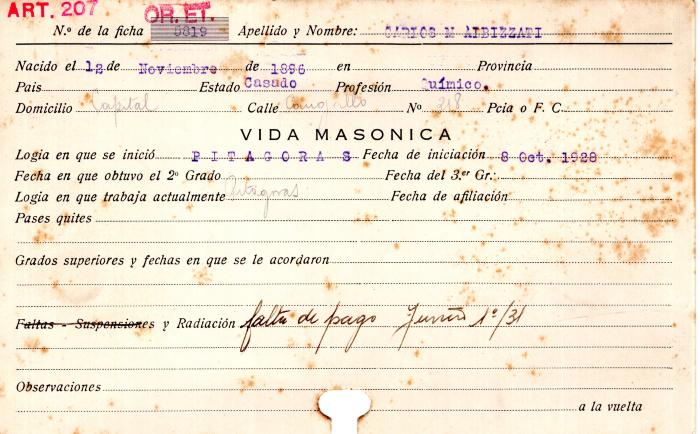 ART. 207
OR. ET.
N.º de la ficha 5819 Apellido y Nombre: CARLOS M ALBIZZATI
Nacido el 12 de Noviembre de 1896 en Provincia
Pais Estado Casado Profesión Químico.
Domicilio Capital Calle Nº 218 Pcia o F. C.
VIDA MASONICA
Logia en que se inició PITAGORAS Fecha de iniciación 8 Oct. 1928
Fecha en que obtuvo el 2º Grado Fecha del 3.er Gr.:
Logia en que trabaja actualmente Pitagoras Fecha de afiliación.
Pases quites
Grados superiores y fechas en que se le acordaron
Faltas - Suspensiones y Radiación falta de pago Junio 1º/31
Observaciones
a la vuelta